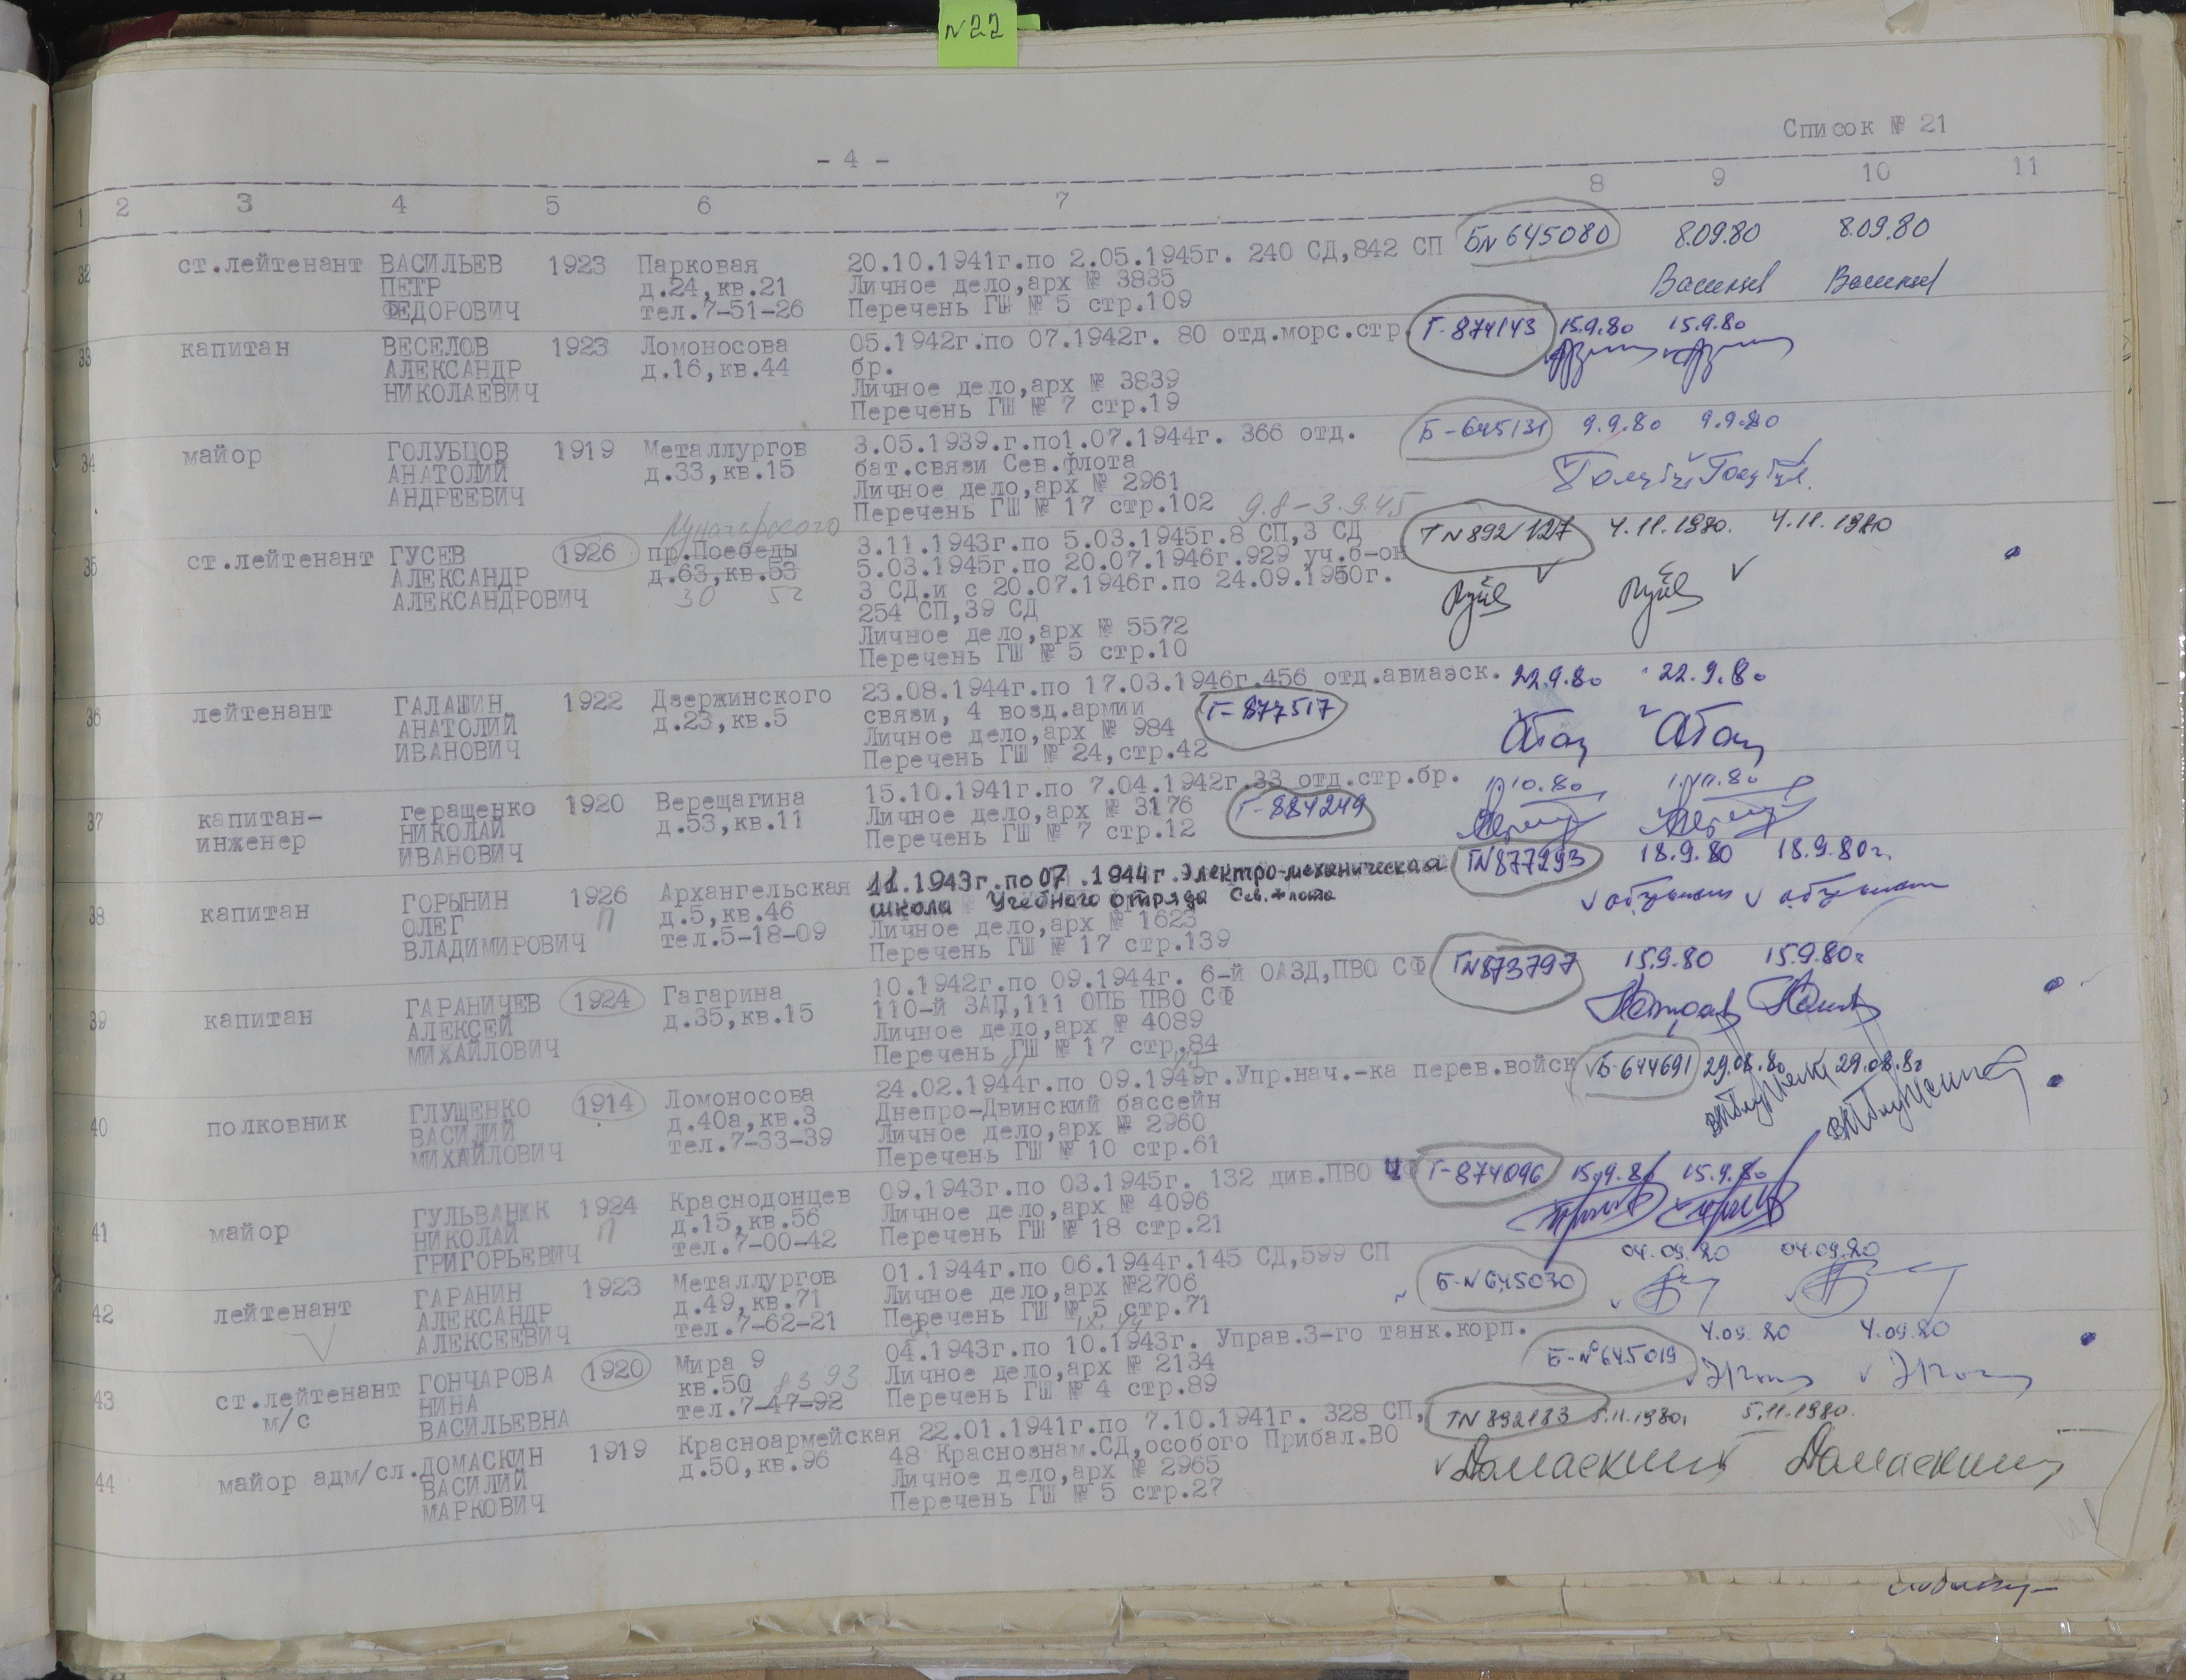 N22
Список № 21
- 4 -
1 2 3 4 5 6 7 8 9 10 11
32 ст.лейтенант ВАСИЛЬЕВ 1923 Парковая 20.10.1941г.по 2.05.1945г. 240 СД,842 СП БN 645080 8.09.80 8.09.80
ПЕТР д.24,кв.21 Личное дело,арх № 3835
ФЕДОРОВИЧ тел.7-51-26 Перечень ГШ № 5 стр.109
33 капитан ВЕСЕЛОВ 1923 Ломоносова 05.1942г.по 07.1942г. 80 отд.морс.стр. Г-874143 15.9.80 15.9.80
АЛЕКСАНДР д.16,кв.44 бр.
НИКОЛАЕВИЧ Личное дело,арх № 3839
Перечень ГШ № 7 стр.19
34 майор ГОЛУБЦОВ 1919 Металлургов 3.05.1939.г.по1.07.1944г. 366 отд. Б-645131 9.9.80 9.9.80
АНАТОЛИЙ д.33,кв.15 бат.связи Сев.флота
АНДРЕЕВИЧ Личное дело,арх № 2961
Перечень ГШ № 17 стр.102 9.8-3.9.45
Луначарского
35 ст.лейтенант ГУСЕВ 1926 пр.Победы 3.11.1943г.по 5.03.1945г.8 СП,3 СД ТN892127 4.11.1980. 4.11.1980
АЛЕКСАНДР д.63,кв.53 5.03.1945г.по 20.07.1946г.929 уч.б-он
АЛЕКСАНДРОВИЧ 30 52 3 СД.и с 20.07.1946г.по 24.09.1950г.
254 СП,39 СД
Личное дело,арх № 5572
Перечень ГШ № 5 стр.10
36 лейтенант ГАЛАШИН 1922 Дзержинского 23.08.1944г.по 17.03.1946г.456 отд.авиаэск. 22.9.80 22.9.80
АНАТОЛИЙ д.23,кв.5 связи, 4 возд.армии Г-877517
ИВАНОВИЧ Личное дело,арх № 984
Перечень ГШ № 24,стр.42
37 капитан- геращенко 1920 Верещагина 15.10.1941г.по 7.04.1942г.33 отд.стр.бр.
инженер НИКОЛАЙ д.53,кв.11 Личное дело,арх № 3176 Г-884249
ИВАНОВИЧ Перечень ГШ № 7 стр.12
38 капитан ГОРЫНИН 1926 Архангельская 11.1943г.по 07.1944г. Электро-механическая ГN877293 18.9.80 18.9.80г.
ОЛЕГ П д.5,кв.46 школа Учебного отряда Сев.Флота
ВЛАДИМИРОВИЧ тел.5-18-09 Личное дело,арх № 1623
Перечень ГШ № 17 стр.139
39 капитан ГАРАНИЧЕВ 1924 Гагарина 10.1942г.по 09.1944г. 6-й ОАЗД,ПВО СФ ГN873797 15.9.80 15.9.80г
АЛЕКСЕЙ д.35,кв.15 110-й ЗАП,111 ОПБ ПВО СФ
МИХАЙЛОВИЧ Личное дело,арх № 4089
Перечень ГШ № 17 стр.84
40 полковник ГЛУЩЕНКО 1914 Ломоносова 24.02.1944г.по 09.1949г.Упр.нач.-ка перев.войск Б-644691 29.08.80 29.08.80
ВАСИЛИЙ д.40а,кв.3 Днепро-Двинский бассейн
МИХАЙЛОВИЧ тел.7-33-39 Личное дело,арх № 2960
Перечень ГШ № 10 стр.61
41 майор ГУЛЬВАНЮК 1924 Краснодонцев 09.1943г.по 03.1945г. 132 див.ПВО Г-874096 15.9.80 15.9.80
НИКОЛАЙ П д.15,кв.56 Личное дело,арх № 4096
ГРИГОРЬЕВИЧ тел.7-00-42 Перечень ГШ № 18 стр.21
42 лейтенант ГАРАНИН 1923 Металлургов 01.1944г.по 06.1944г.145 СД,599 СП Б-N645030 04.09.80 04.09.80
АЛЕКСАНДР д.49,кв.71 Личное дело,арх №2706
АЛЕКСЕЕВИЧ тел.7-62-21 Перечень ГШ № 5 стр.71
43 ст.лейтенант ГОНЧАРОВА 1920 Мира 9 04.1943г.по 10.1943г. Управ.3-го танк.корп. Б-№645019 4.09.80 4.09.80
м/с НИНА кв.50 Личное дело,арх № 2134
ВАСИЛЬЕВНА тел.7-47-92 Перечень ГШ № 4 стр.89
44 майор адм/сл. ДОМАСКИН 1919 Красноармейская 22.01.1941г.по 7.10.1941г. 328 СП, ТN 892183 5.11.1980. 5.11.1980.
ВАСИЛИЙ д.50,кв.96 48 Краснознам.СД,особого Прибал.ВО Домаскин Домаскин
МАРКОВИЧ Личное дело,арх № 2965
Перечень ГШ № 5 стр.27